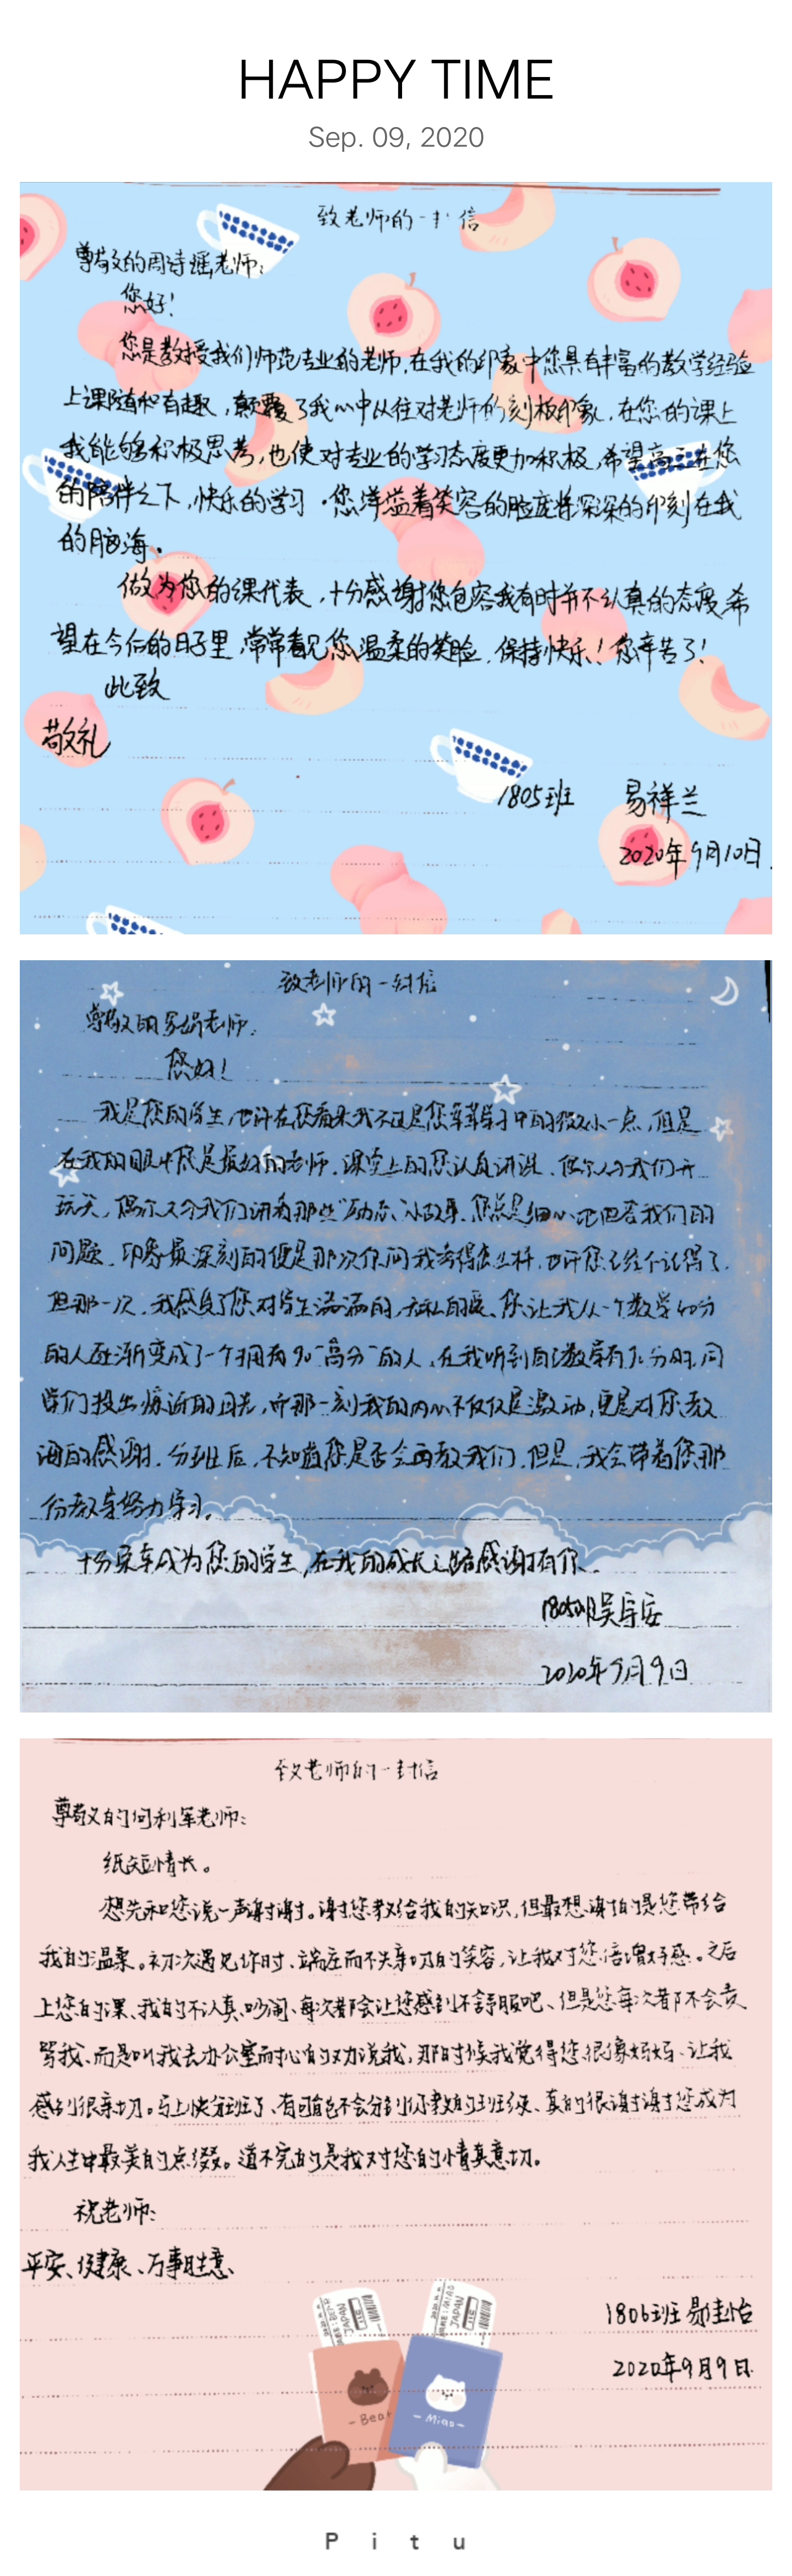 HAPPY TIME
Sep. 09, 2020
致老师的一封信
尊敬的周诗瑶老师:
您好!
您是教授我们师范专业的老师,在我的印象中您具有丰富的教学经验
上课随和有趣,颠覆了我心中从往对老师的刻板印象,在您的课上
我能够积极思考,也使对专业的学习态度更加积极,希望高三在您
的陪伴之下,快乐的学习。您洋溢着笑容的脸庞将深深的印刻在我
的脑海。
做为您的课代表,十分感谢您包容我有时并不认真的态度,希
望在今后的日子里,常常看见您温柔的笑脸,保持快乐!您辛苦了!
此致
敬礼
1805班 易祥兰
2020年9月10日.
致老师的一封信
尊敬的 老师:
您好!
我是您的学生,也许在您看来我不过是您莘莘学子中的微小一点,但是
在我的眼中您是最好的老师.课堂上的您认真讲课,偶尔会和我们开
玩笑,偶尔又会我们讲着那些"励志"小故事.您总是细心地回答我们的
问题.印象最深刻的便是那次你问我考得怎么样,也许您已经不记得了.
但那一次,我感受了您对学生满满的,无私的爱、你让我从一个数学40分
的人逐渐变成了一个拥有90"高分"的人.在我听到自己数学有九 分时,同
学们投出 的目光,听那一刻我的内心不仅仅是激动,更是对你教
诲的感谢.分班后,不知道您是否会再教我们,但是,我会带着您那
份教导努力学习。
十分荣幸成为您的学生,在我的成长之路感谢有你.
1805班吴 安
2020年9月9日
致老师的一封信
尊敬的何利军老师:
纸短情长。
想先和您说一声谢谢。谢谢您教给我的知识,但最想谢的是您带给
我的温柔。初次遇见你时、端庄而不失亲切的笑容,让我对您倍增好感。之后
上您的课、我的不认真、吵闹、每次都会让您感到不舒服吧、但是您每次都不会责
骂我、而是叫我去办公室耐心的劝说我,那时候我觉得您很像妈妈、让我
感到很亲切。马上快分班了、有可能不会分到你教的班级、真的很谢谢您成为
我人生中最美的点缀。道不完的是我对您的情真意切。
祝老师:
平安、健康、万事胜意、
1806班 佳怡
2020年9月9日.
JAPAN
JAPAN
-Bear
-Miao-
Pitu